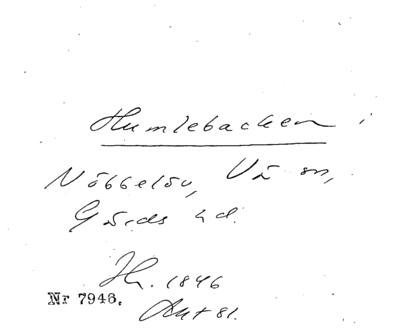 Humlebacken i
Nöbbelöv, Vä sn,
Gärds hd.
Hr. 1846
Nr 7946.
Akt 81.